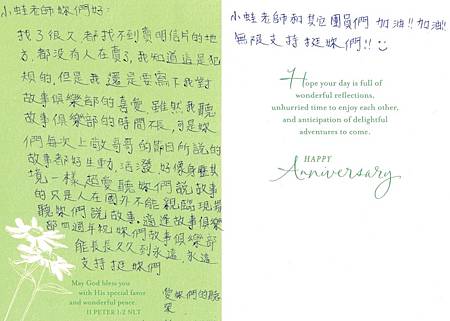 小蛙老師妳們好:
找了很久都找不到賣明信片的地
方,都沒有人在賣了,我知道這是犯
規的,但是我還是要寫下我對
故事俱樂部的喜愛 雖然我聽
故事俱樂部的時間不長,可是妳
們每次上敵哥哥的節目所說的
故事都好生動,活潑 好像身歷其
境一樣 超愛聽妳們說故事
的只是人在國外不能親臨現場
聽妳們說故事.適逢故事俱樂
部四週年祝妳們故事俱樂部
能長長久久到永遠 永遠
支持挺妳們
愛妳們的聽
眾
May God bless you
with His special favor
and wonderful peace.
II PETER 1:2 NLT
小蛙老師和其它團員們 加油!!加油!!
無限支持挺妳們!!
Hope your day is full of
wonderful reflections,
unhurried time to enjoy each other,
and anticipation of delightful
adventures to come.
HAPPY
Anniversary